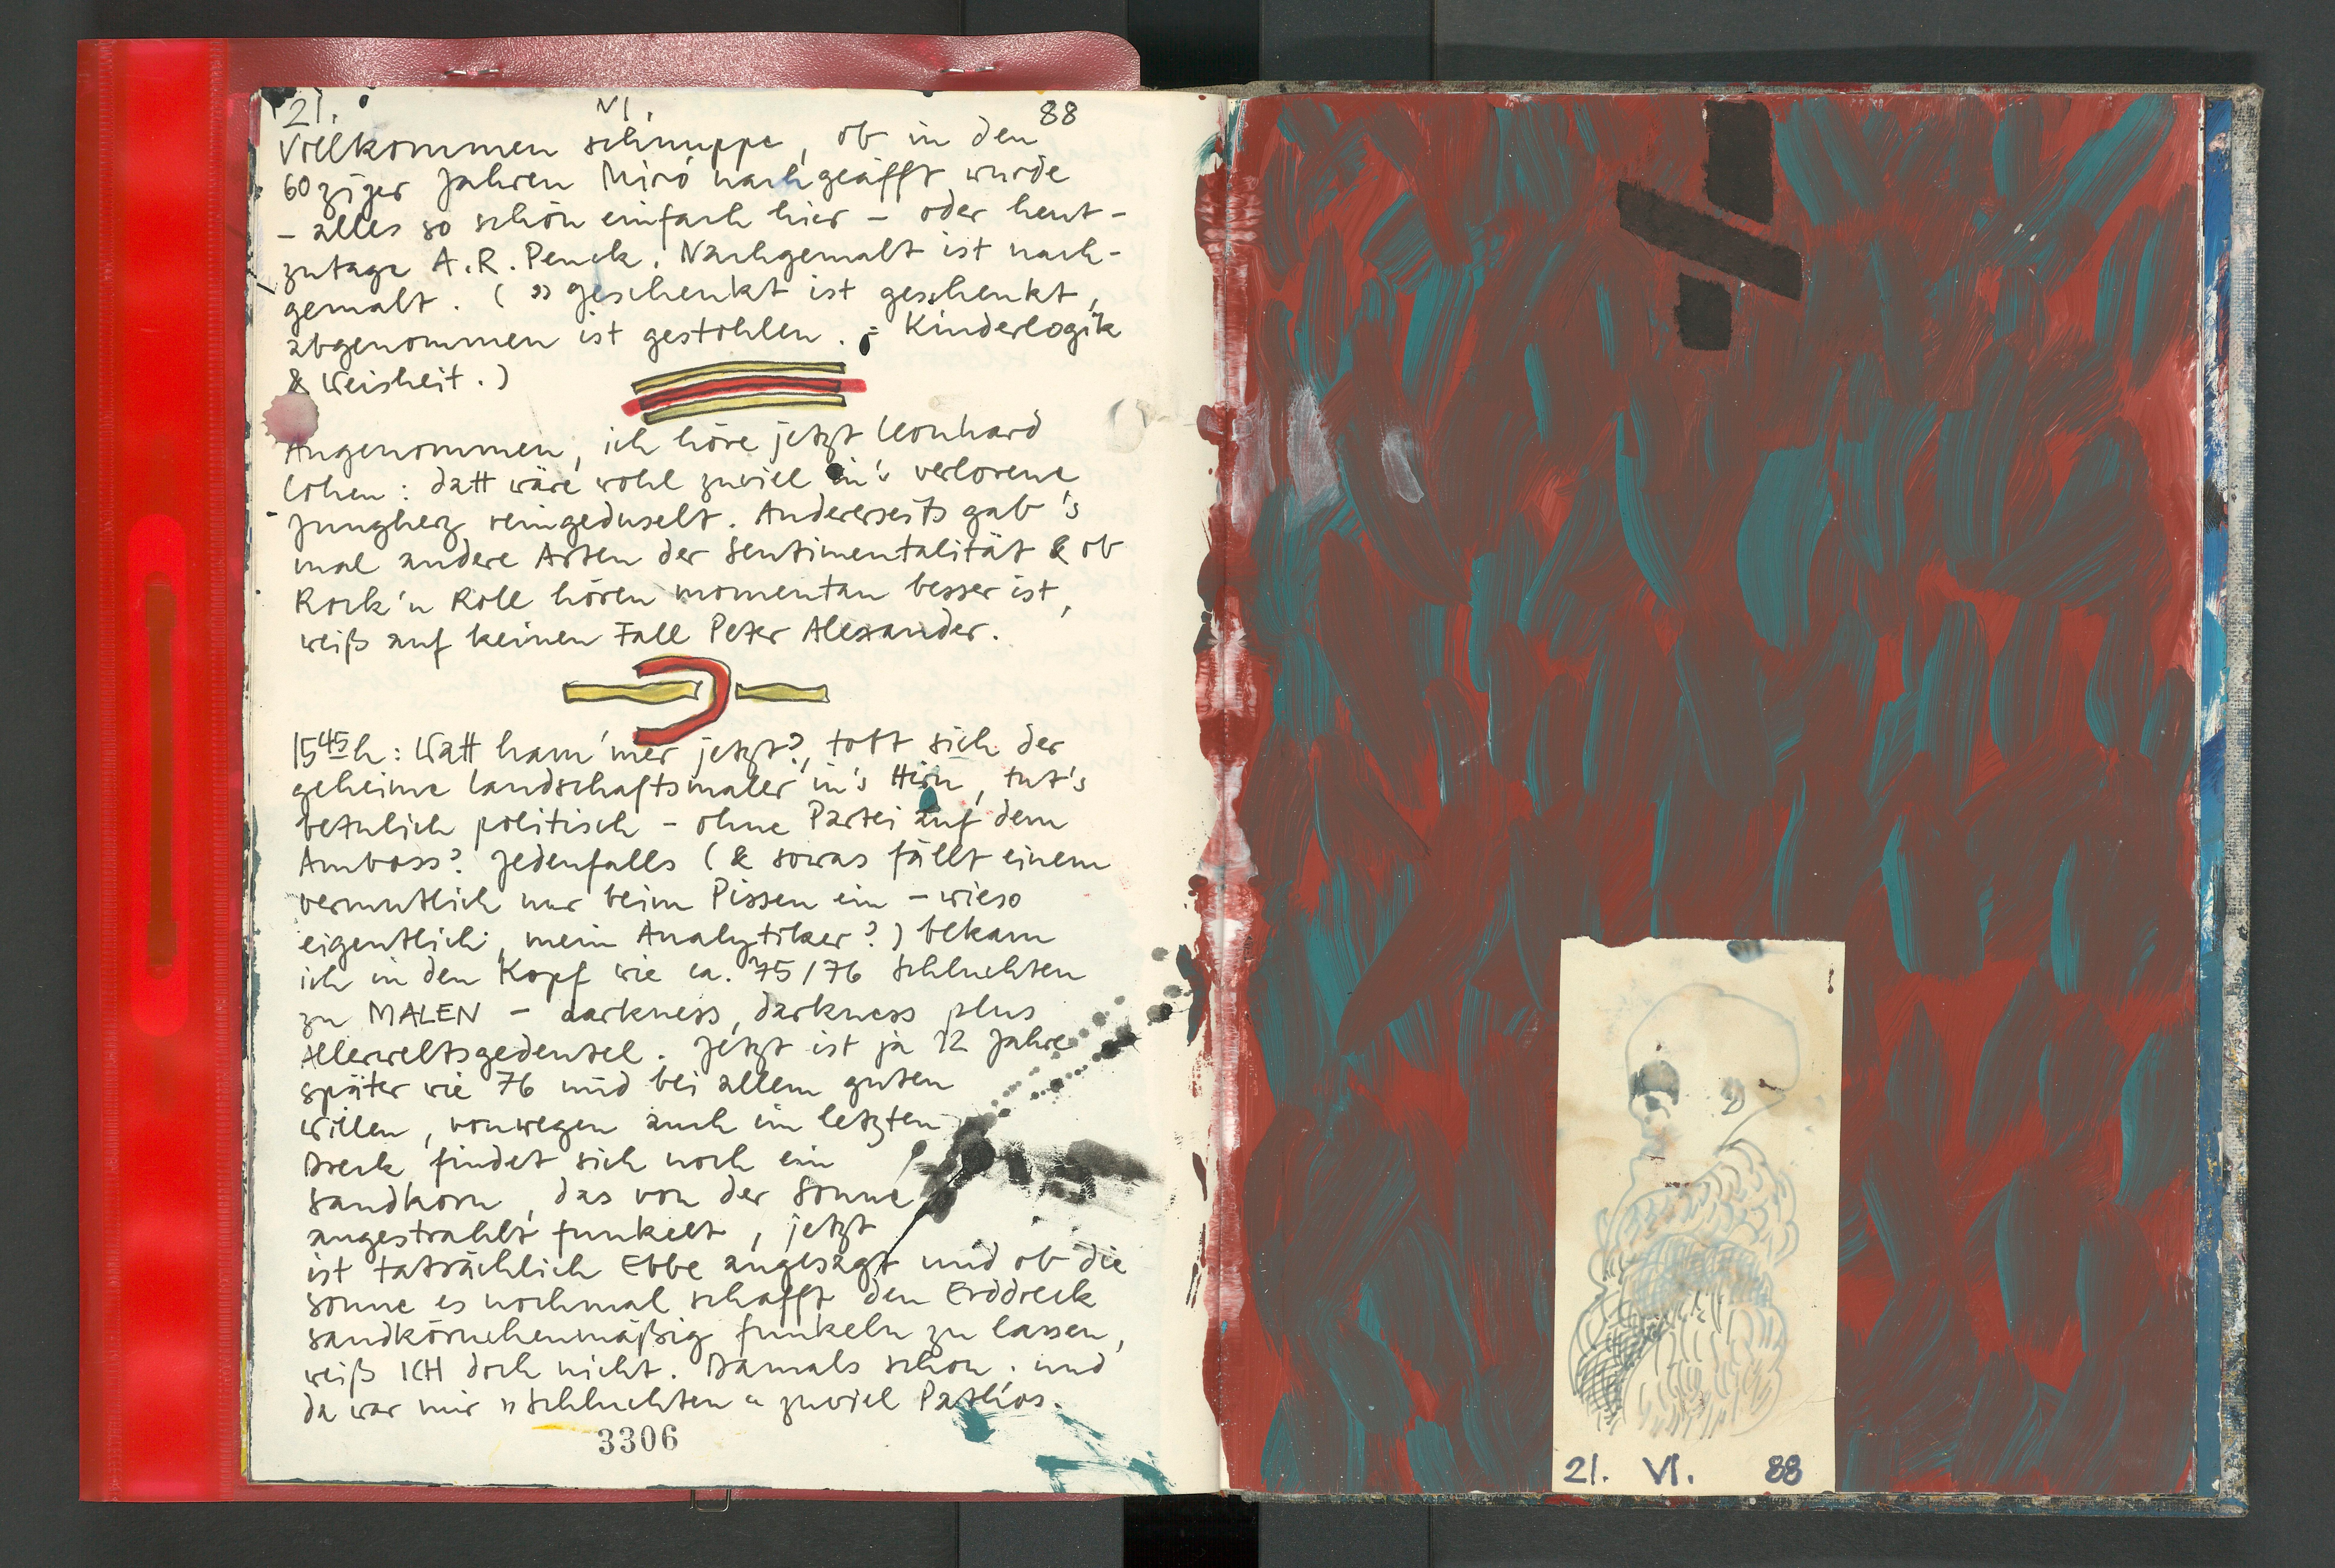 21. VI. 88
Vollkommen schnuppe, ob in den
60ziger Jahren Miró nachgeäfft wurde
– alles so schön einfach hier – oder heut-
zutage A.R. Penck. Nachgemalt ist nach-
gemalt. (» geschenkt ist geschenkt,
abgenommen ist gestohlen. = Kinderlogik
& Weisheit.)
Angenommen, ich höre jetzt Leonhard
Cohen: datt wäre wohl zuviel in's verlorene
Jungherz reingeduselt. Andererseits gab's
mal andere Arten der Sentimentalität & ob
Rock'n Roll hören momentan besser ist,
weiß auf keinen Fall Peter Alexander.
15 45 h: Watt ham'mer jetzt?, tobt sich der
geheime Landschaftsmaler in's Hirn, tut's
betulich politisch – ohne Partei auf dem
Amboss? Jedenfalls (& sowas fällt einem
vermutlich nur beim Pissen ein – wieso
eigentlich, mein Analytiker?) bekam
ich in den Kopf wie ca. 75/76 Schluchten
zu MALEN – darkness, darkness plus
Allerweltsgedeutel. Jetzt ist ja 12 Jahre
später wie 76 und bei allem guten
Willen, vonwegen auch im letzten
Dreck findet sich noch ein
Sandkorn, das von der Sonne
angestrahlt funkelt, jetzt
ist tatsächlich Ebbe angesagt und ob die
Sonne es nochmal schafft den Erddreck
sandkörnchenmäßig funkeln zu lassen,
weiß ICH doch nicht. Damals schon. und
da war mir »Schluchten« zuviel Pathos.
3306
21. VI. 88